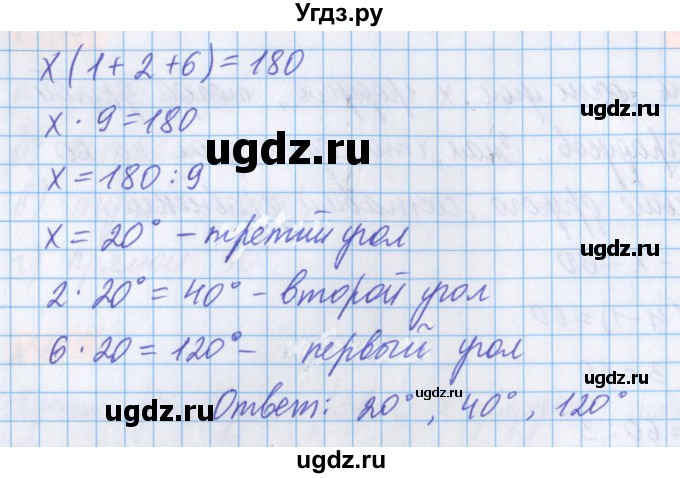 Угдз.ру
x(1+2+6)=180
x · 9=180
ugdz.ru
x=180:9
x=20° – третий угол
2 · 20°=40° – второй угол
6 · 20=120° – первый угол
ugdz.ru
ugdz.ru
Ответ: 20°, 40°, 120°
ugdz.ru